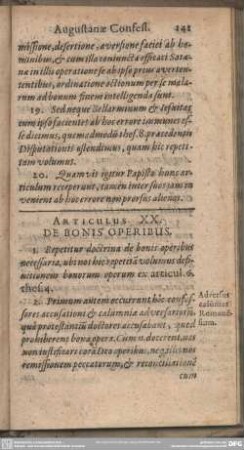 Augustanæ Confess. 141
missione, desertione, aversione faciei ab ho-
minibus, & cum illa coniuncta efficaci Sata-
næ in illis operatione se ab ipso prius averten-
tentibus, ordinatione actionum per se mala-
rum ad bonum finem intelligenda sunt.
19. Sed neque Bellarminum & Iesuitas
cum ipso faciente ab hoc errore immunes es-
se dicimus, quemadmodũ thes. 8. præcedentis
Disputationis ostendimus, quam hic repeti-
tam volumus.
20. Quamvis igitur Papistæ hunc ar-
ticulum receperunt, tamen inter suos iam in-
venient ab hoc errore nõ prorsus alienos.
ARTICULUS XX.
DE BONIS OPERIBUS.
1. Repetitur doctrina de bonis operibus
necessaria, ubi nos hic repetitã volumus defi-
nitionem bonorum operum ex articul. 6.
thes. 4.
2. Primum autem occurrunt hic confes-
sores accusationi & calumniæ adversariorũ,
qui protestantiũ doctores accusabant, quod
prohiberent bona opera. Cum n. docerent, nos
non iustificari coram Deo operibus, neq; illis nos
remissionem peccatorum, & reconciliationẽ
cum
Adversus
calumniã
Romanẽ-
sium.